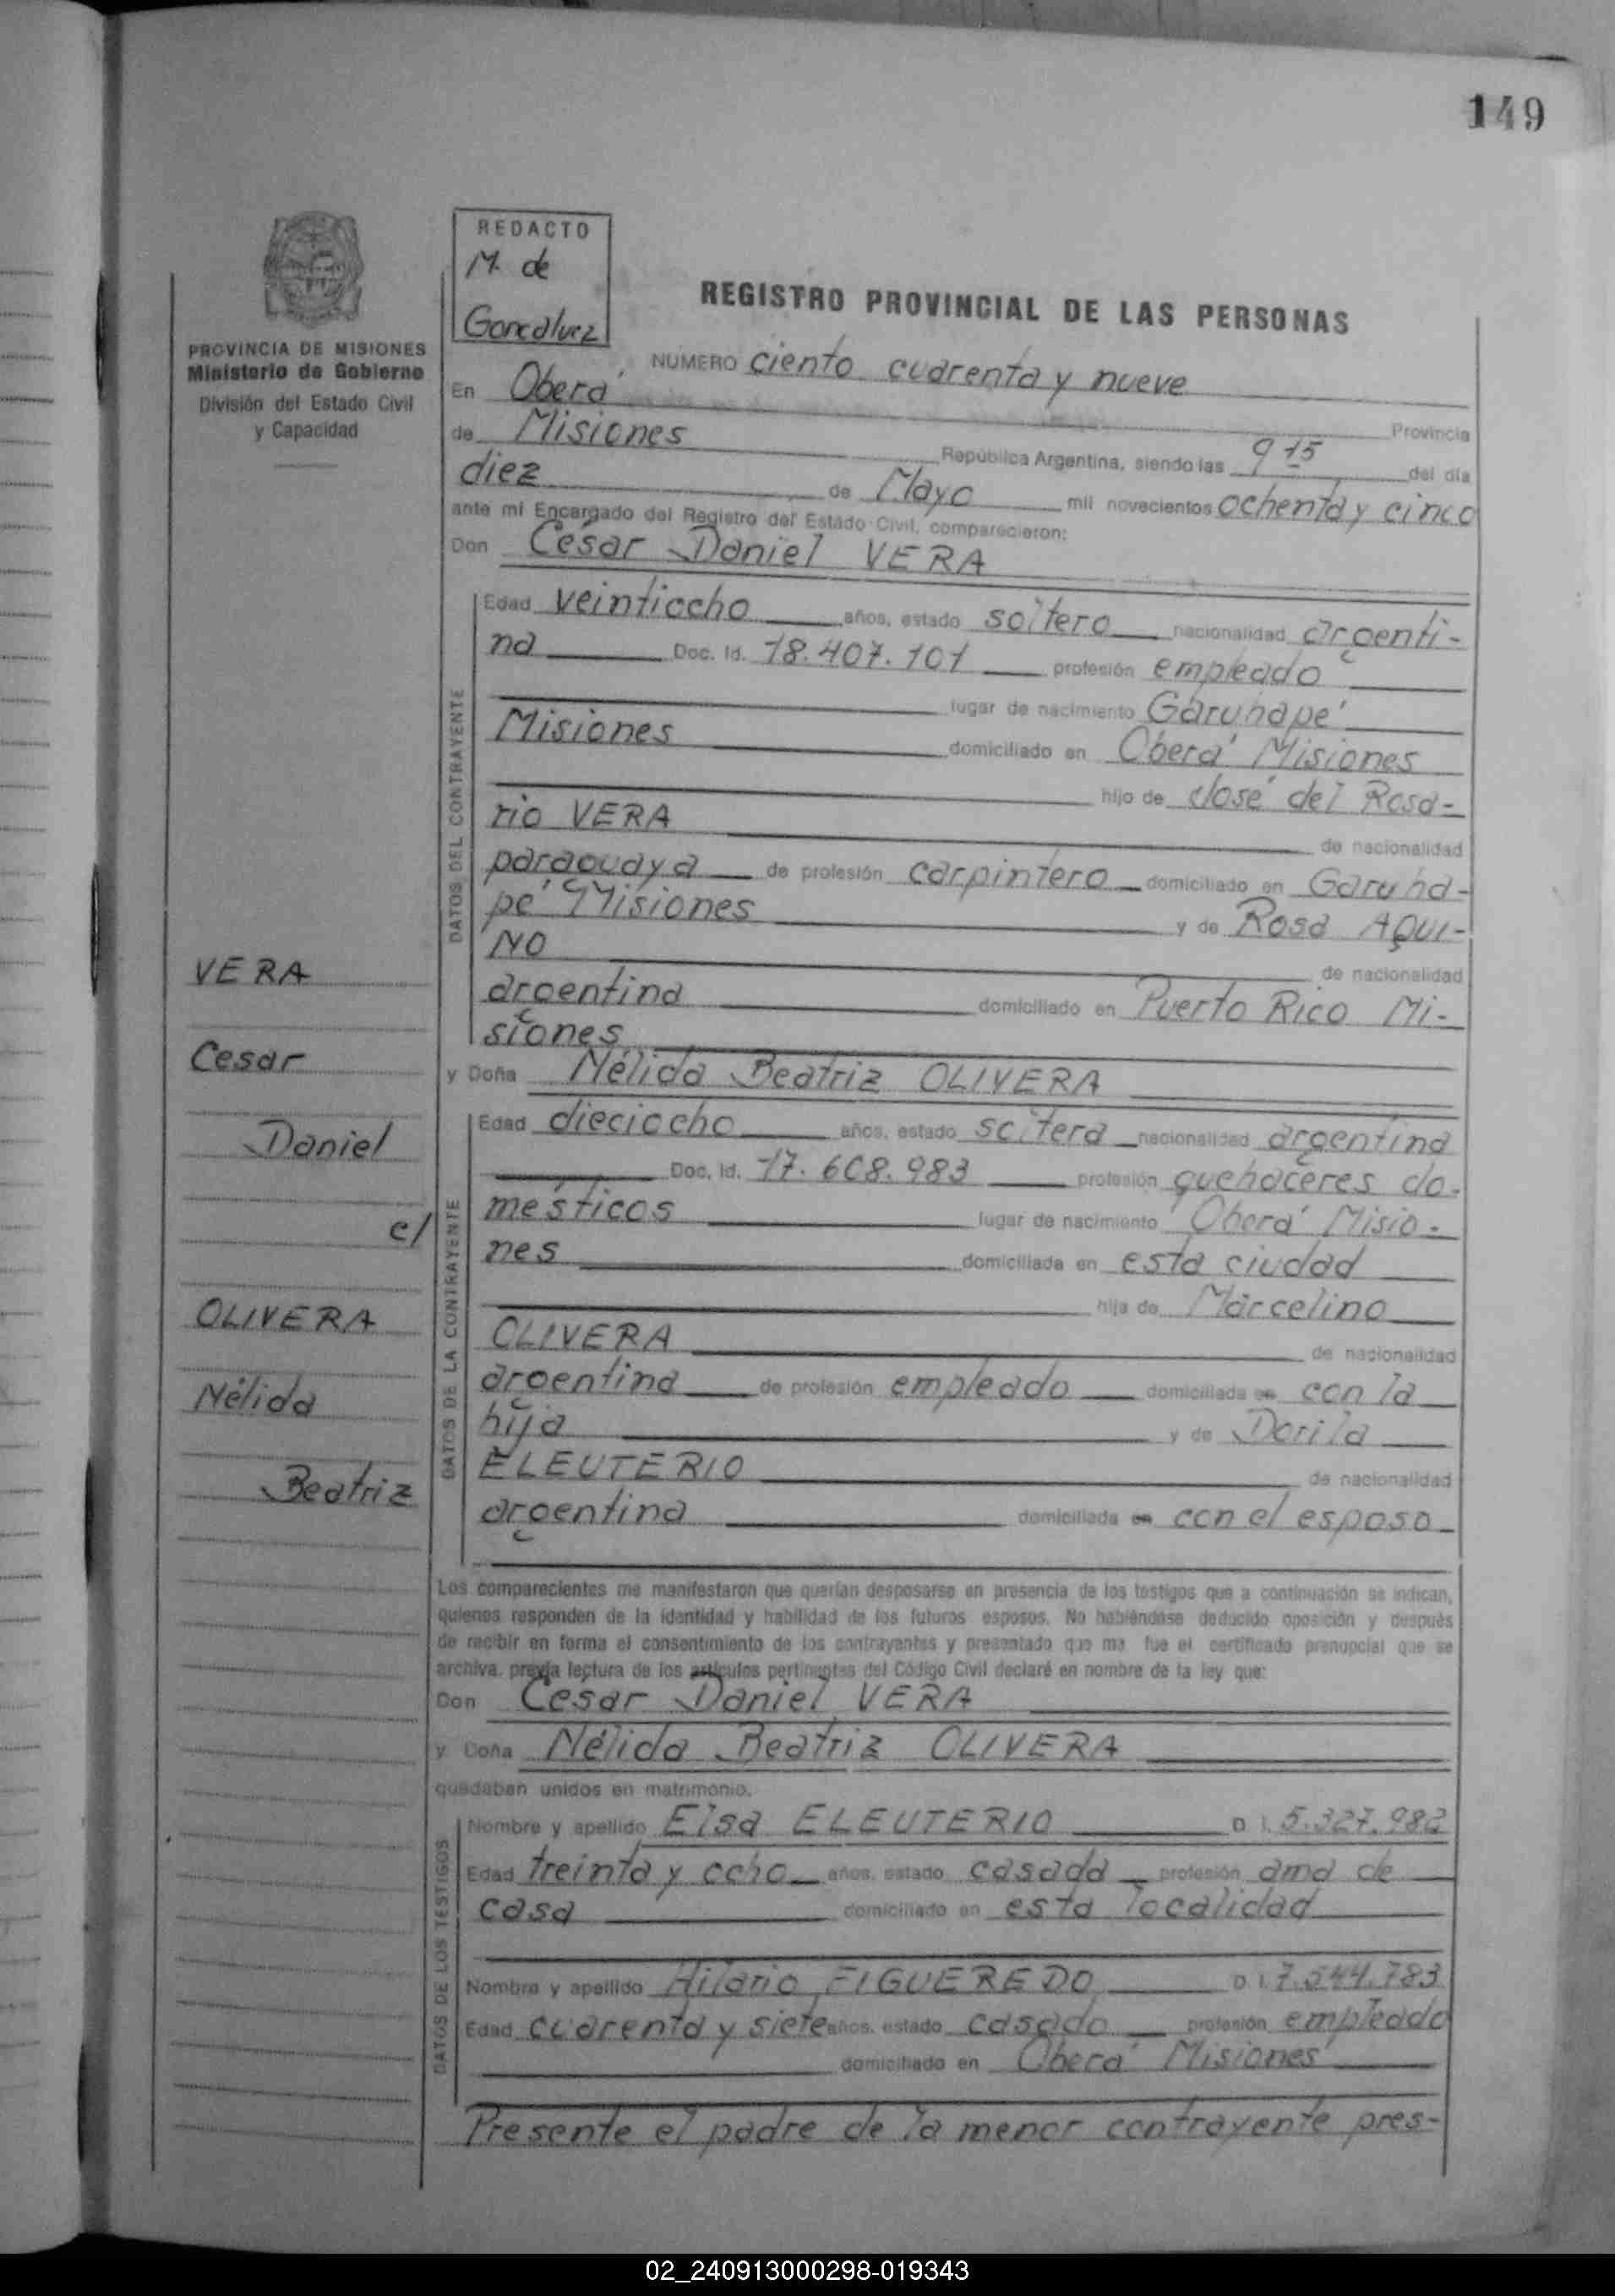 149
REDACTO
M. de
Goncalvez
REGISTRO PROVINCIAL DE LAS PERSONAS
PROVINCIA DE MISIONES
Ministerio de Gobierno
División del Estado Civil
y Capacidad
NUMERO ciento cuarenta y nueve
En Oberá
Provincia
de Misiones República Argentina, siendo las 9 15 del día
diez de Mayo mil novecientos ochenta y cinco
ante mí Encargado del Registro del Estado Civil, comparecieron:
Don Cesar Daniel VERA
DATOS DEL CONTRAYENTE
Edad veintiocho años, estado soltero nacionalidad argenti-
na Doc. Id. 18.407.101 profesión empleado
lugar de nacimiento Garuhapé
Misiones domiciliado en Oberá Misiones
hijo de José del Rosa-
rio VERA de nacionalidad
paraguaya de profesión carpintero domiciliado en Garuha-
pé Misiones y de Rosa AQUI-
NO de nacionalidad
argentina domiciliado en Puerto Rico Mi-
siones
y Doña Nélida Beatriz OLIVERA
DATOS DE LA CONTRAYENTE
Edad dieciocho años, estado soltera nacionalidad argentina
Doc. Id. 17.608.983 profesión quehaceres do-
mésticos lugar de nacimiento Oberá Misio-
nes domiciliada en esta ciudad
hija de Marcelino
OLIVERA de nacionalidad
argentina de profesión empleado domiciliada en con la
hija y de Dorila
ELEUTERIO de nacionalidad
argentina domiciliada en con el esposo
VERA
Cesar
Daniel
c/
OLIVERA
Nélida
Beatriz
Los comparecientes me manifestaron que querían desposarse en presencia de los testigos que a continuación se indican,
quienes responden de la identidad y habilidad de los futuros esposos. No habiéndose deducido oposición y después
de recibir en forma el consentimiento de los contrayentes y presentado que me fue el certificado prenupcial que se
archiva, previa lectura de los artículos pertinentes del Código Civil declaré en nombre de la ley que:
Don Cesar Daniel VERA
y Doña Nélida Beatriz OLIVERA
quedaban unidos en matrimonio.
DATOS DE LOS TESTIGOS
Nombre y apellido Elsa ELEUTERIO D. I. 5.327.982
Edad treinta y ocho años, estado casada profesión ama de
casa domiciliado en esta localidad
Nombre y apellido Hilario FIGUEREDO D. I. 7.544.783
Edad cuarenta y siete años, estado casado profesión empleado
domiciliado en Oberá Misiones
Presente el padre de la menor contrayente pres-
02_240913000298-019343